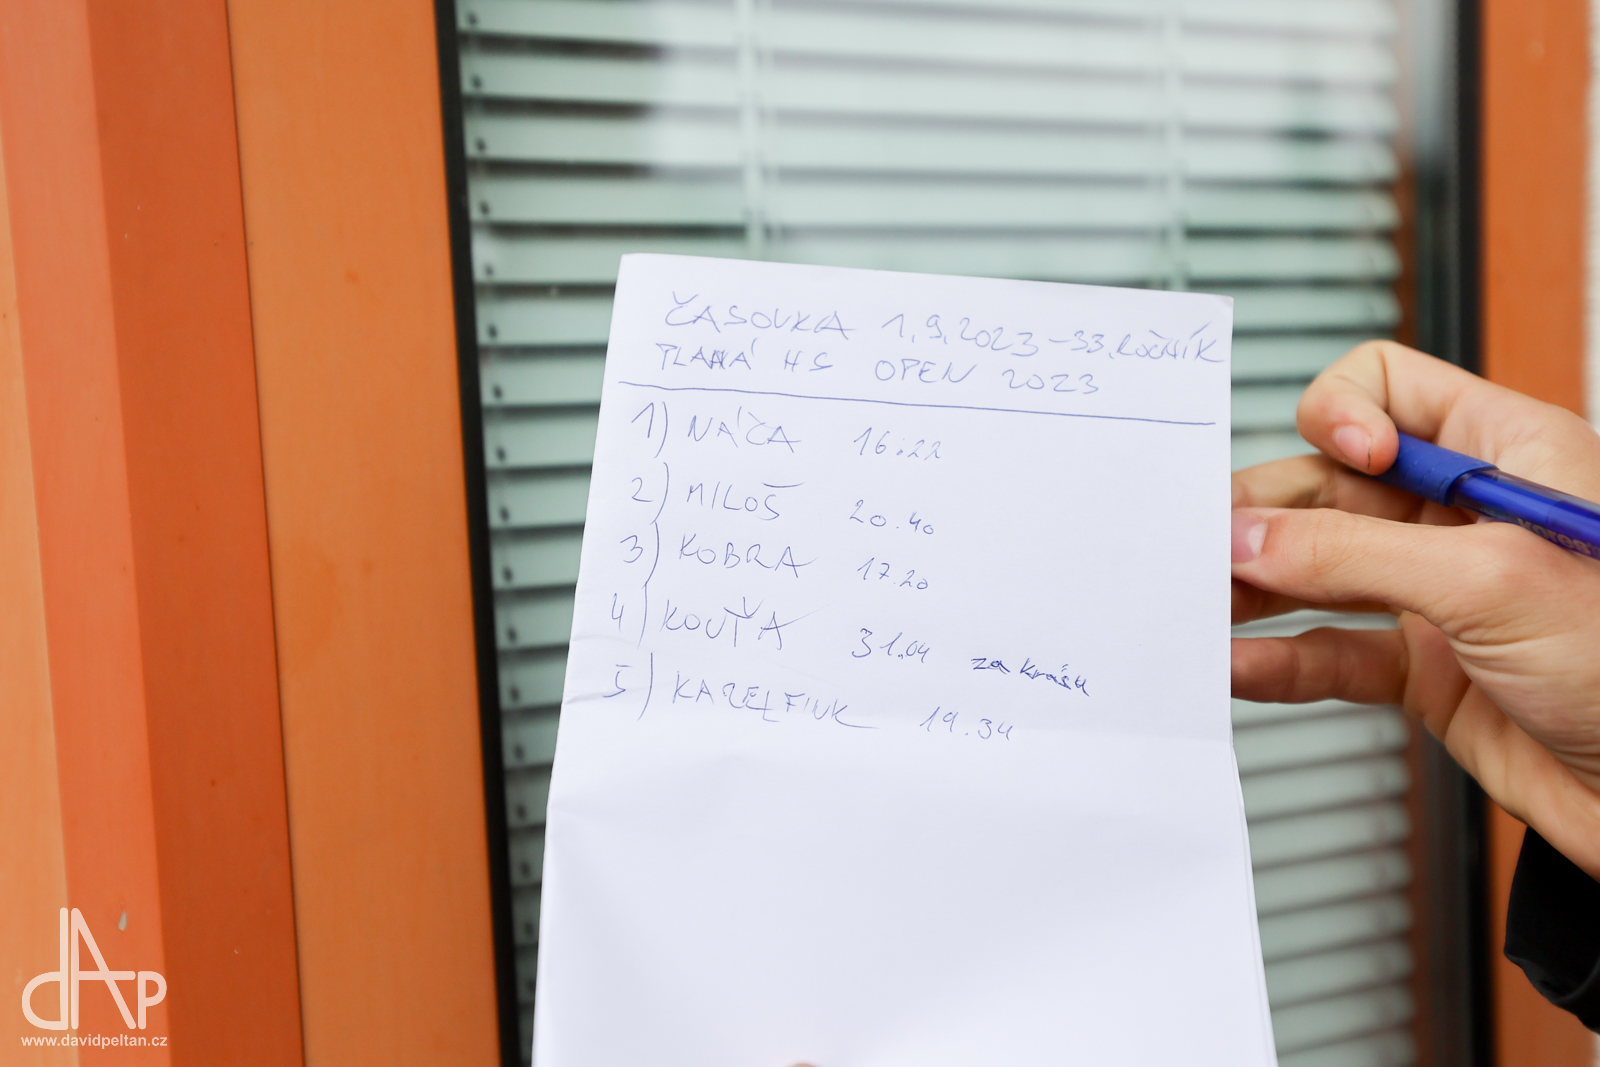 ČASOVKA 1.9.2023 - 33. ROČNÍK
PLANÁ HS OPEN 2023
1) NÁČA 16:22
2) MILOŠ 20.40
3) KOBRA 17.20
4) KOUŤA 31.04 za krásu
5) KAZELFINK 19.34
dAP
www.davidpeltan.cz